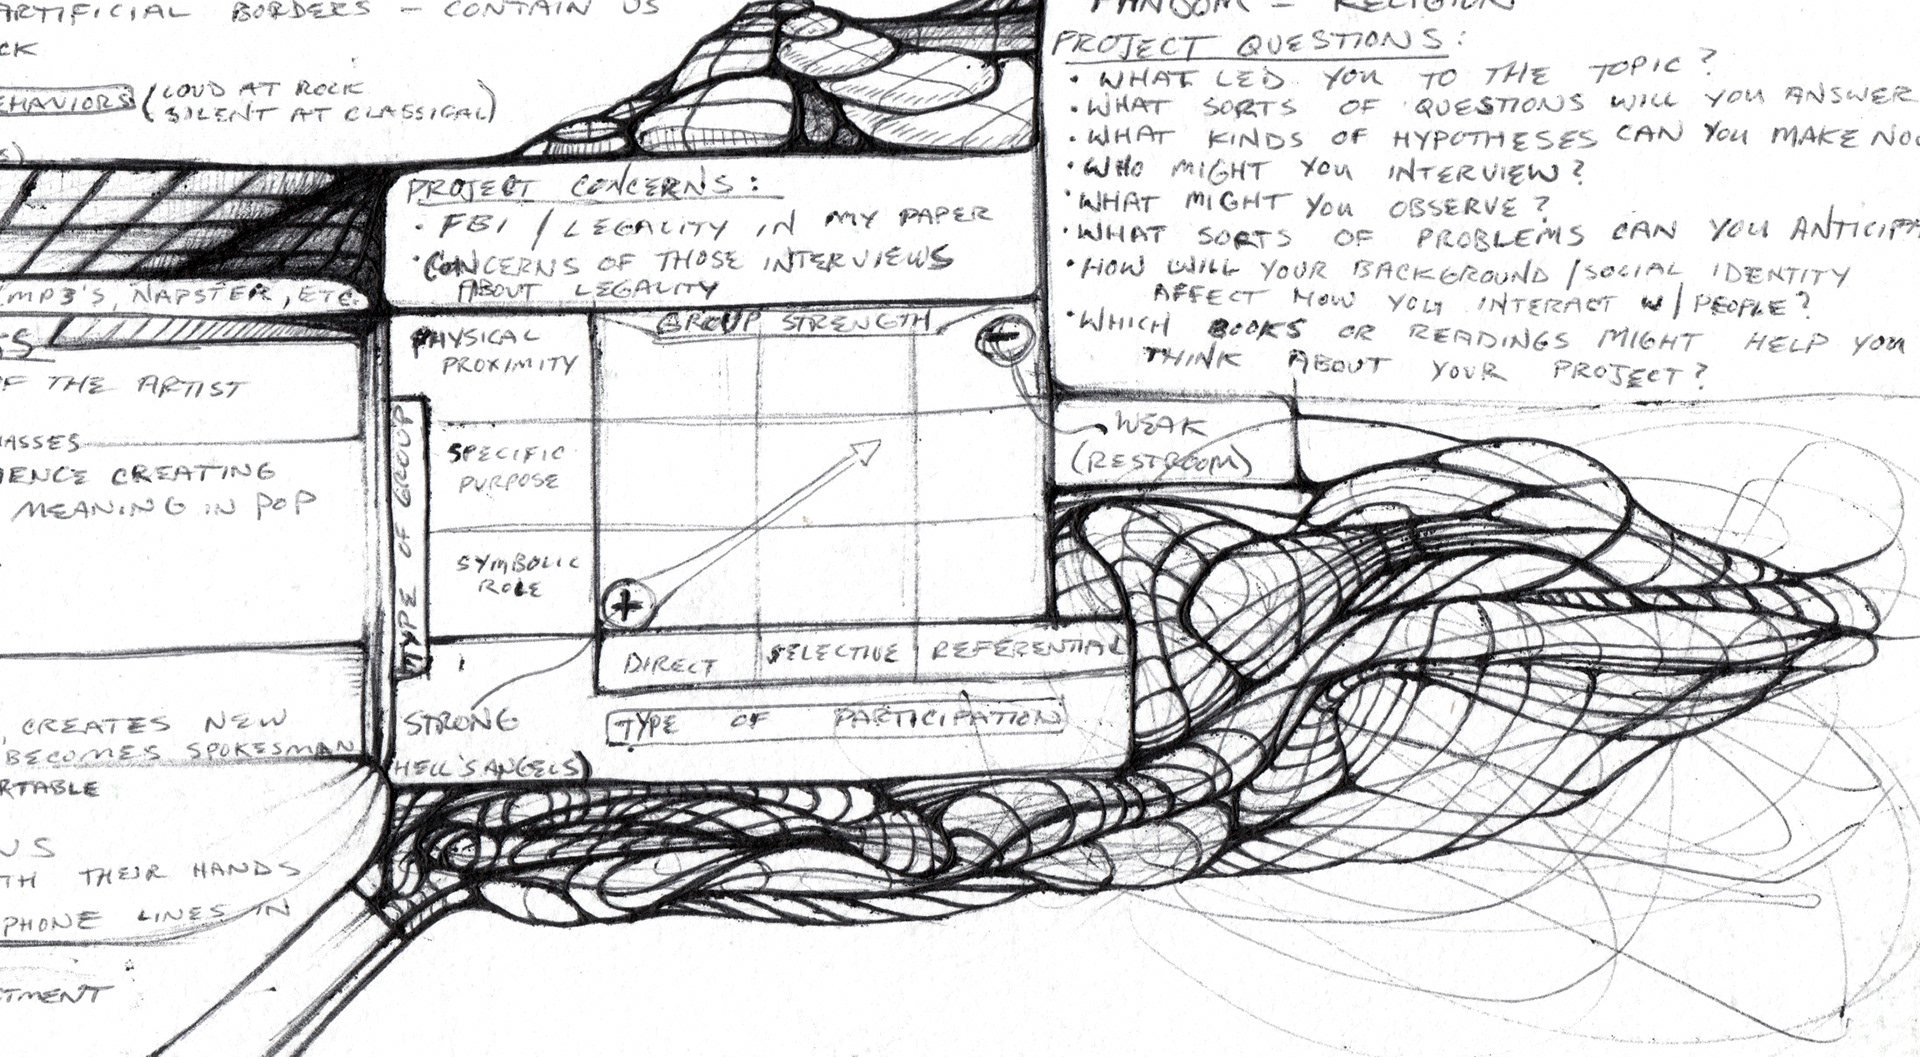 ARTIFICIAL BORDERS – CONTAIN US
CK
EHAVIORS (LOUD AT ROCK
SILENT AT CLASSICAL)
S)
MP3'S, NAPSTER, ETC.
GS
OF THE ARTIST
ASSES
IENCE CREATING
MEANING IN POP
CREATES NEW
BECOMES SPOKESMAN
RTABLE
US
TH THEIR HANDS
PHONE LINES IN
TMENT
PROJECT CONCERNS:
• FBI / LEGALITY IN MY PAPER
• CONCERNS OF THOSE INTERVIEWS
ABOUT LEGALITY
GROUP STRENGTH
PHYSICAL
PROXIMITY
SPECIFIC
PURPOSE
SYMBOLIC
ROLE
TYPE OF GROUP
–
+
WEAK
(RESTROOM)
DIRECT SELECTIVE REFERENTIAL
TYPE OF PARTICIPATION
STRONG
HELL'S ANGELS)
FANDOM – RELIGION
PROJECT QUESTIONS:
• WHAT LED YOU TO THE TOPIC?
• WHAT SORTS OF QUESTIONS WILL YOU ANSWER
• WHAT KINDS OF HYPOTHESES CAN YOU MAKE NO
• WHO MIGHT YOU INTERVIEW?
• WHAT MIGHT YOU OBSERVE?
• WHAT SORTS OF PROBLEMS CAN YOU ANTICIP
• HOW WILL YOUR BACKGROUND / SOCIAL IDENTITY
AFFECT HOW YOU INTERACT W/ PEOPLE?
• WHICH BOOKS OR READINGS MIGHT HELP YOU
THINK ABOUT YOUR PROJECT?